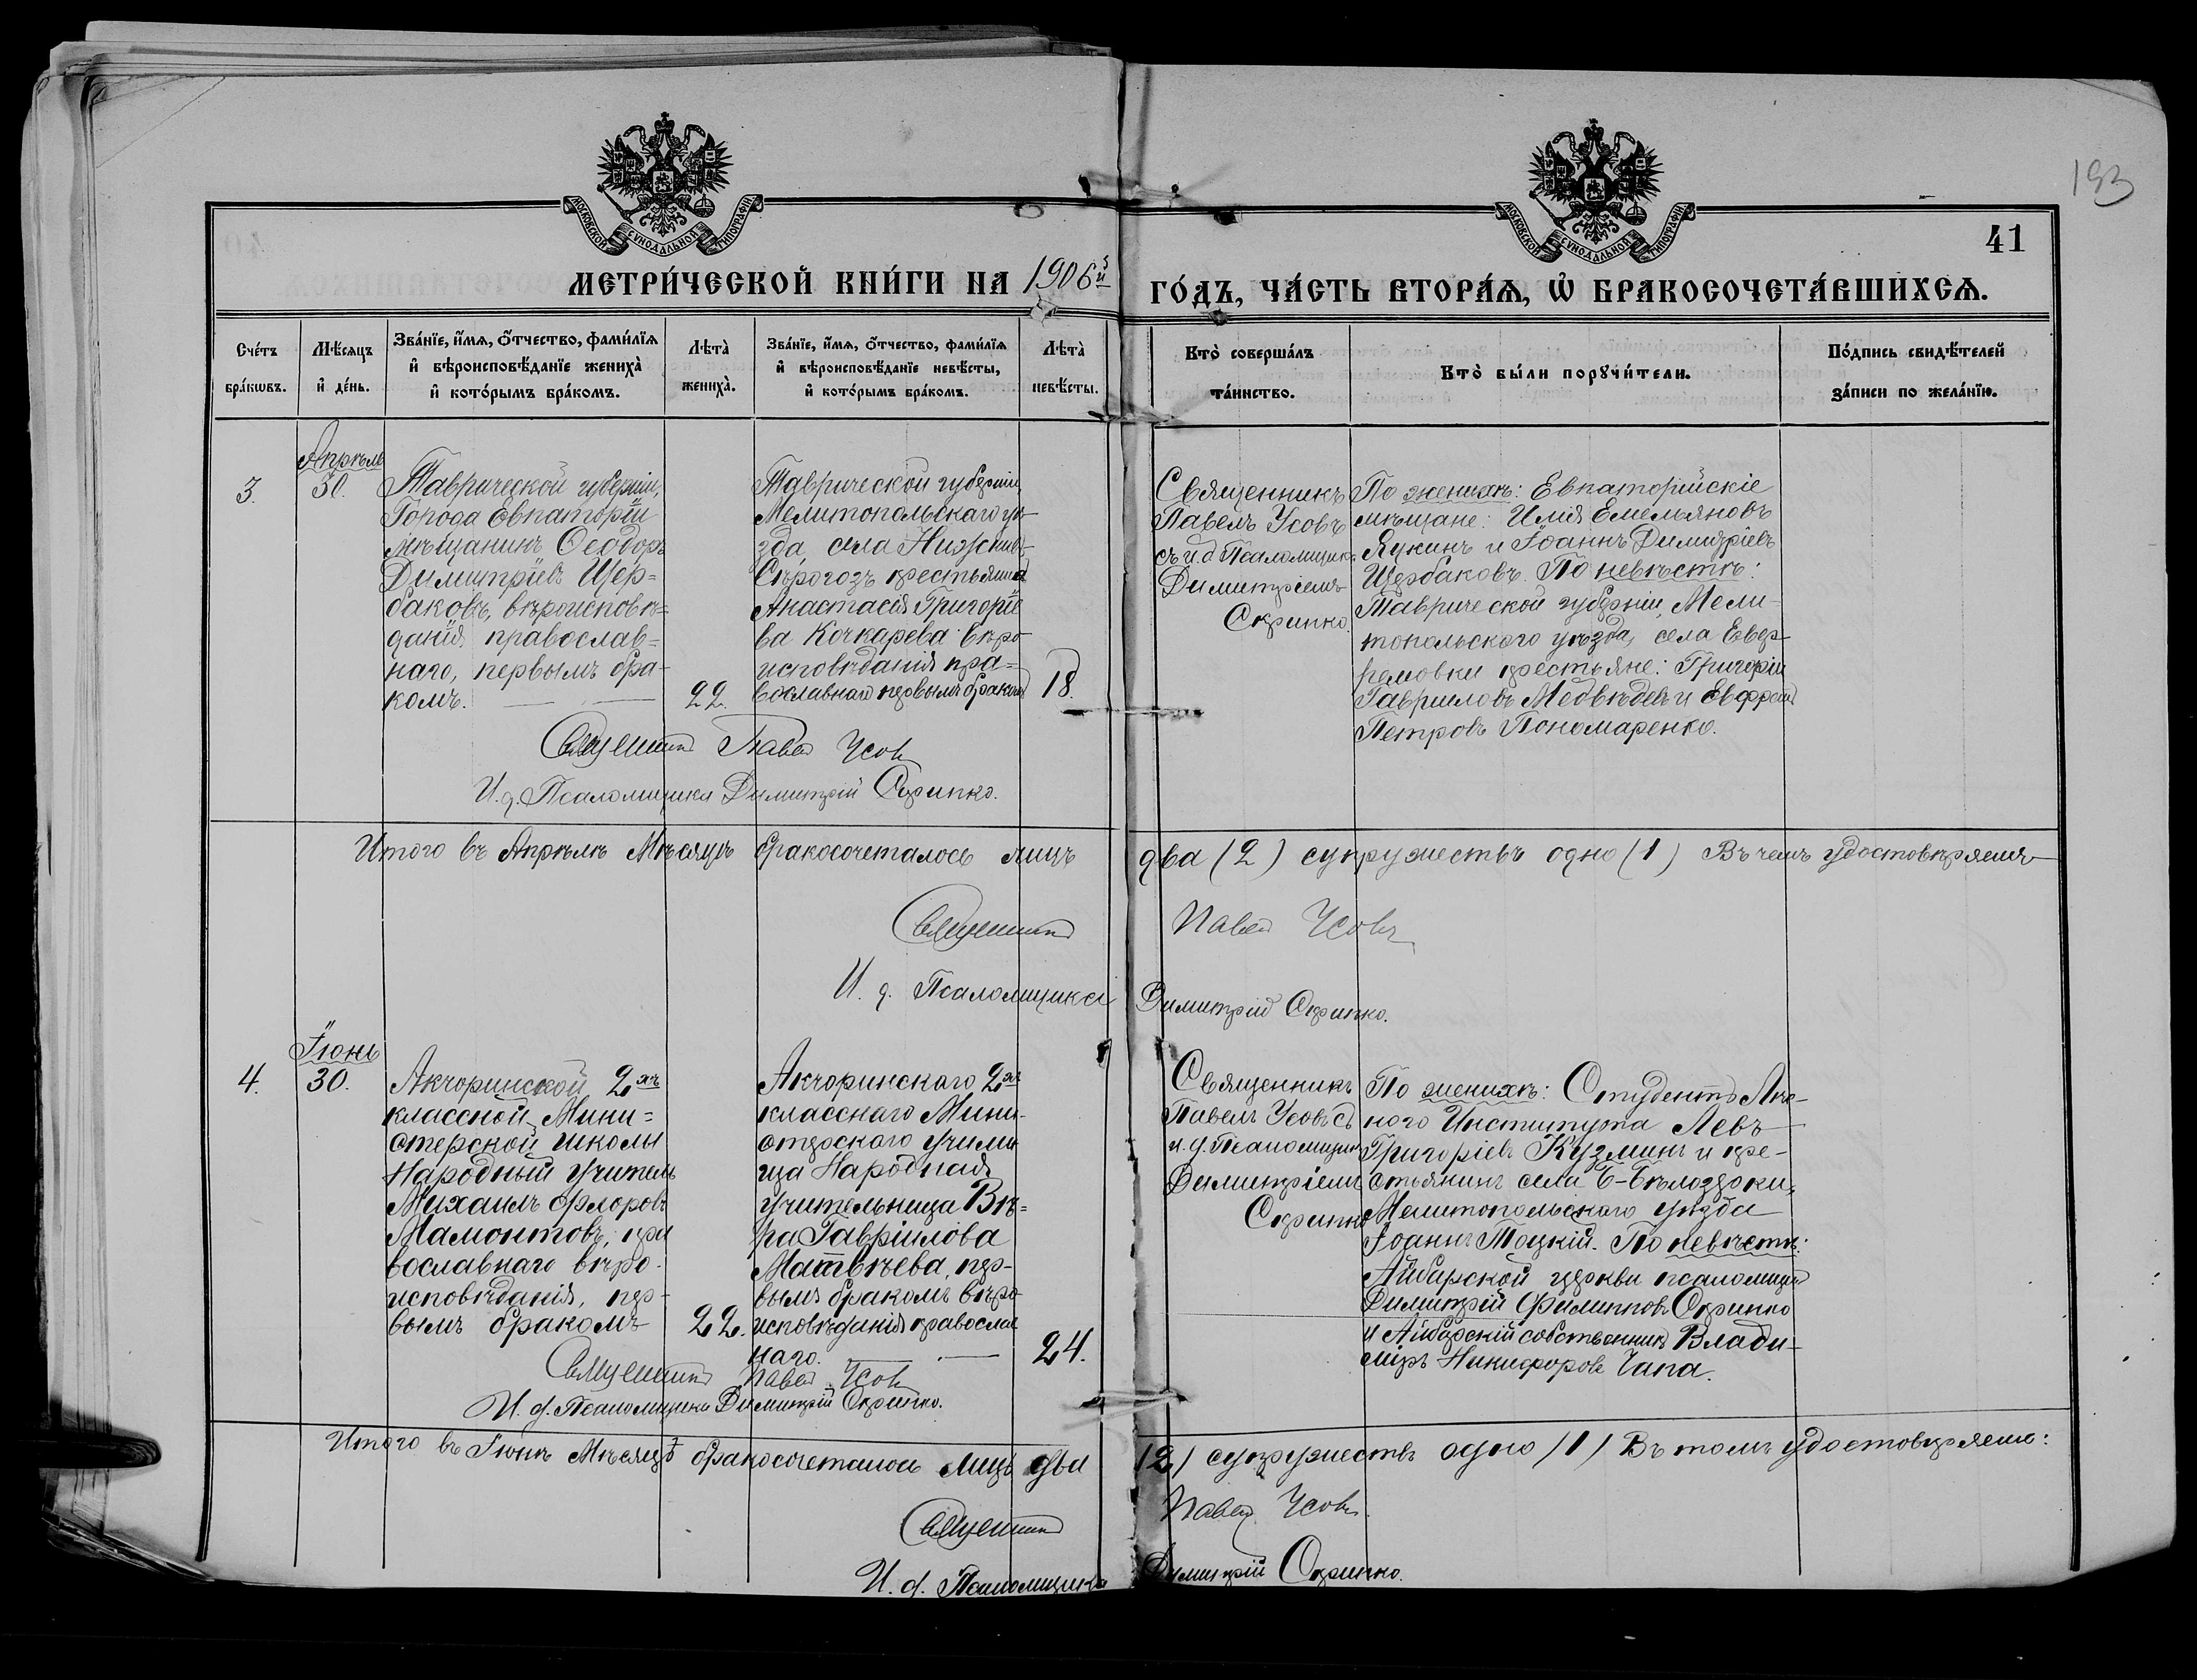 193
МОСКОВСКОЙ СѴНОДАЛЬНОЙ ТИПОГРАФІИ
МОСКОВСКОЙ СѴНОДАЛЬНОЙ ТИПОГРАФІИ
41
МЕТРИ́ЧЕСКОЙ КНИ́ГИ НА 1906й ГО́ДЪ, ЧА́СТЬ ВТОРА́Ѧ, Ѡ҆ БРАКОСОЧЕТА́ВШИХСѦ.
Сче́тъ
бра́кѡвъ.
Мѣ́сяцъ
и҆ де́нь.
Зва́нїе, и҆́мѧ, о҆́тчество, фами́лїѧ
и҆ вѣроисповѣ́данїе жениха̀
и҆ кото́рымъ бра́комъ.
Лѣта̀
жениха̀.
Зва́нїе, и҆́мѧ, о҆́тчество, фами́лїѧ
и҆ вѣроисповѣ́данїе невѣ́сты,
и҆ кото́рымъ бра́комъ.
Лѣта̀
невѣ́сты.
Кто̀ соверша́лъ
та́инство.
Кто̀ бы́ли порꙋчи́тели.
По́дпись свидѣ́телей
за́писи по жела́нїю.
3.
Апрѣль
30.
Таврической губерніи,
Города Евпаторіи
мѣщанинъ Ѳеодоръ
Димитріевъ Щер=
баковъ, вѣроисповѣ=
данія православ=
наго, первымъ бра-
комъ.
22.
Таврической губерніи
Мелитопольскаго уѣ-
зда, села Нижнихъ
Сѣрогозъ крестьянка
Анастасія Григоріе
ва Кочкарева вѣро-
исповѣданія пра=
вославнаго первымъ бракомъ
18.
Священникъ
Павелъ Усовъ
съ и.д. Псаломщика
Димитріемъ
Скрипко.
По женихѣ: Евпаторійскіе
мѣщане: Илія Емельяновъ
Якинъ и Іоаннъ Димитріевъ
Щербаковъ. По невѣстѣ:
Таврической губерніи, Мели-
топольского уѣзда, села
крестьяне: Григорій
Гавриловъ Медвѣдевъ и
Петровъ Пономаренко.
Священникъ Павелъ Усовъ
И.д. Псаломщика Димитрій Скрипко.
Итого въ Апрѣлѣ Мѣсяцѣ бракосочеталось лицъ два (2) супружествъ одно (1) Въ чемъ удостовѣряемъ
Священникъ Павелъ Усовъ
И. д. Псаломщика Димитрій Скрипко.
4.
Іюнь
30.
Акчоринской 2хъ
классной Мини=
стерской школы
Народный учитель
Михаилъ Флоровъ
Мамонтовъ, пра
вославнаго вѣро-
исповѣданія, пер-
вымъ бракомъ
22.
Акчоринскаго 2хъ
класснаго Мини-
стерскаго училы
ща Народная
учительница Вѣ=
ра Гавріилова
Матвѣева, пер-
вымъ бракомъ вѣро
исповѣданія православ
наго.
24.
Священникъ
Павелъ Усовъ съ
и.д. Псаломщика
Димитріемъ
Скрипко
По женихѣ: Студентъ
Института Левъ
Григоріевъ Кузминъ и кре-
стьянинъ села Б-Бѣлозерки,
Мелитопольскаго уѣзда
Іоаннъ Тоцкій. По невѣстѣ:
Айбарской церкви псаломщикъ
Димитрій Филипповъ Скрипко
и Айбарскій собственникъ Влади-
міръ Никифоровъ Чапа.
Священникъ Павелъ Усовъ
И. д. Псаломщика Димитрій Скрипко.
Итого въ Іюнѣ Мѣсяцѣ бракосочеталось лицъ два (2) супружествъ одно (1) Въ томъ удостовѣряемъ:
Священникъ Павелъ Усовъ
И. д. Псаломщика Димитрій Скрипко.